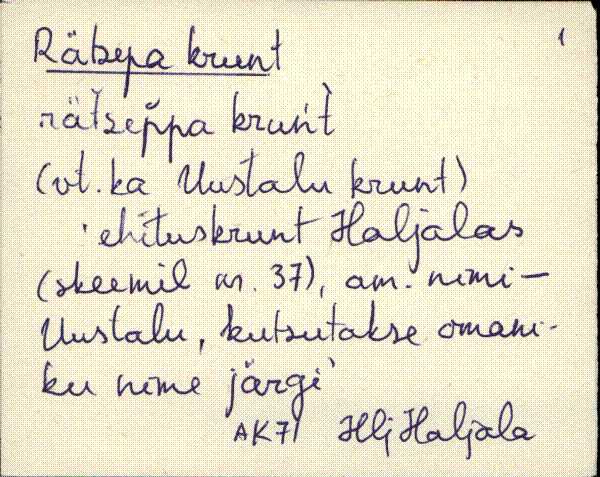 1
Rätsepa krunt
rätsεp̆pa krun̓t̀
(vt. ka Uustalu krunt)
'ehituskrunt Haljalas
(skeemil nr. 37), am. nimi –
Uustalu, kutsutakse omani-
ku nime järgi'
AK71 Hlj Haljala